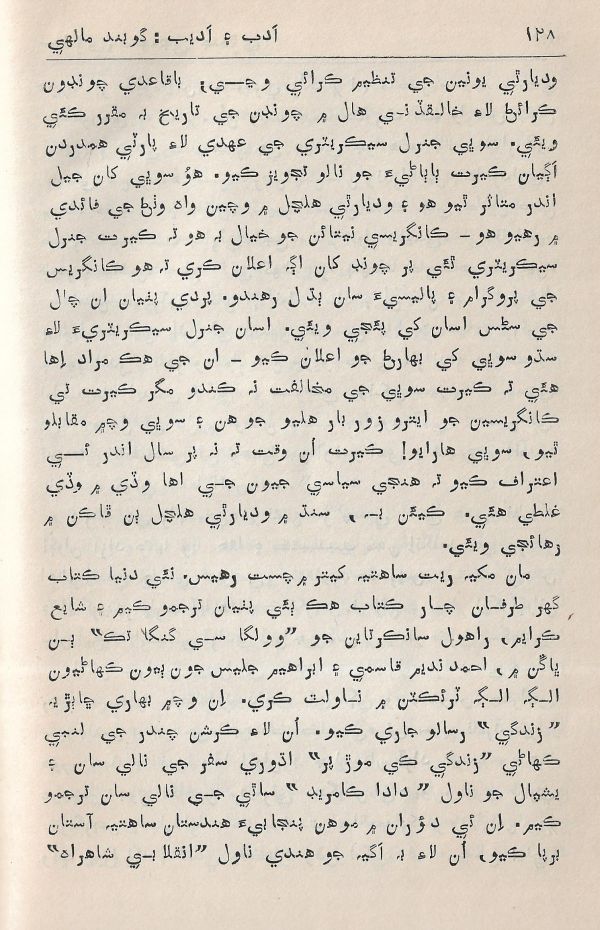 ۱۲۸ اَدب ۽ اَديب : گوبند مالهي
وديارٿي يونين جي تنظيم ڪرائي وڃي، باقاعدي چونڊون
ڪرائڻ لاءِ خالقڏني هال ۾ چونڊن جي تاريخ بہ مقرر ڪئي
ويئي. سوڀي جنرل سيڪريٽري جي عهدي لاءِ پارٽي همدردن
اڳيان ڪيرت ٻاٻاڻيءَ جو نالو تجويز ڪيو. هوُ سوڀي کان جيل
اندر متاثر ٿيو هو ۽ وديارٿي هلچل ۾ وچين واٽ وٺڻ جي فائدي
۾ رهيو هو – ڪانگريسي نيتائن جو خيال بہ هو تہ ڪيرت جنرل
سيڪريٽري ٿئي پر چونڊ کان اڳہ اعلان ڪري تہ هو ڪانگريس
جي پروگرام ۽ پاليسيءَ سان ٻڌل رهندو. پردي پٺيان ان چال
جي سڻس اسان کي پئجي ويئي. اسان جنرل سيڪريٽريءَ لاءِ
سڌو سوڀي کي بهارڻ جو اعلان ڪيو – ان جي هڪ مراد اِها
هئي تہ ڪيرت سوڀي جي مخالفت نہ ڪندو مگر ڪيرت تي
ڪانگريسين جو ايترو زور بار هليو جو هن ۽ سوڀي وچ۾ مقابلو
ٿيو، سوڀي هارايو! ڪيرت اُن وقت تہ نہ پر سال اندر ئي
اعتراف ڪيو تہ هنجي سياسي جيون جي اها وڏي ۾ وڏي
غلطي هئي. ڪيئن بہ، سنڌ ۾ وديارٿي هلچل ٻن ڦاڪن ۾
رهائجي ويئي.
مان مکيہ ريت ساهتيہ کيتر ۾ چست رهيس. نئي دنيا ڪتاب
گهر طرفان چار ڪتاب هڪ ٻئي پٺيان ترجمو ڪيم ۽ شايع
ڪرايم، راهول سانڪرتاين جو ”وولگا سي گنگلا تڪ“ ٻن
ڀاڱن ۾، احمد نديم قاسمي ۽ ابراهيم جليس جون ٻيون ڪهاڻيون
الڳہ الڳہ ٽرئڪٽن ۾ ناولٽ ڪري. اِن وچ۾ بهاري ڇاٻڙيہ
”زندگي“ رسالو جاري ڪيو. اُن لاءِ ڪرشن چندر جي لنبي
ڪهاڻي ”زندگي کي موڙ پر“ اڌوري سفر جي نالي سان ۽
يشپال جو ناول ”دادا ڪامريڊ“ ساٿي جي نالي سان ترجمو
ڪيم. اِن ئي دؤران ۾ موهن پنجابيءَ هندستان ساهتيہ آستان
برپا ڪيو، اُن لاءِ بہ آگيہ جو هندي ناول ”انقلابي شاهراه“